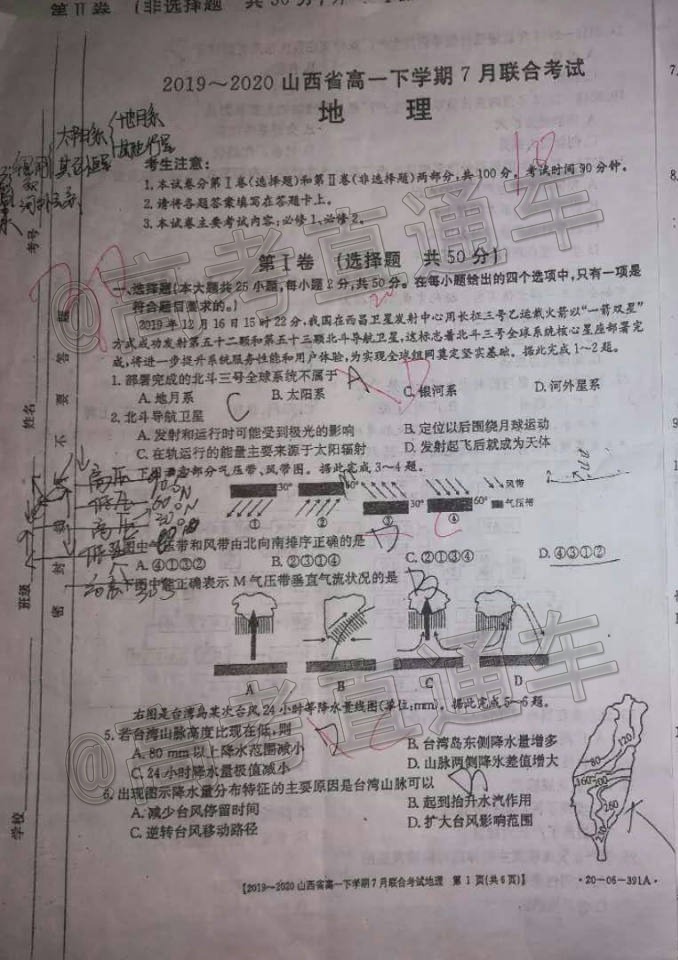 第Ⅱ卷 (非选择题 共50分)
2019～2020山西省高一下学期7月联合考试
地 理
考生注意：
1.本试卷分第Ⅰ卷(选择题)和第Ⅱ卷(非选择题)两部分，共100分。考试时间90分钟。
2.请将各题答案填写在答题卡上。
3.本试卷主要考试内容：必修1、必修2。
第Ⅰ卷 (选择题 共50分)
一、选择题(本大题共25小题，每小题2分，共50分。在每小题给出的四个选项中，只有一项是
符合题目要求的。)
2019年12月16日15时22分，我国在西昌卫星发射中心用长征三号乙运载火箭以“一箭双星”
方式成功发射第五十二颗和第五十三颗北斗导航卫星，这标志着北斗三号全球系统核心星座部署完
成，将进一步提升系统服务性能和用户体验，为实现全球组网奠定坚实基础。据此完成1～2题。
1.部署完成的北斗三号全球系统不属于 A D
A.地月系 B.太阳系 C.银河系 D.河外星系
2.北斗导航卫星 C
A.发射和运行时可能受到极光的影响 B.定位以后围绕月球运动
C.在轨运行的能量主要来源于太阳辐射 D.发射起飞后就成为天体
下图为部分气压带、风带图。据此完成3～4题。
30° 60° 30° 60° 风带 气压带
① ② ③ ④
图中气压带和风带由北向南排序正确的是 D C
A.④①③② B.②③①④ C.②①③④ D.④③①②
图中能正确表示M气压带垂直气流状况的是 B
A B C D
右图是台湾岛某次台风24小时等降水量线图(单位：mm)。据此完成5～6题。
5.若台湾山脉高度比现在低，则 C
A.80 mm以上降水范围减小 B.台湾岛东侧降水量增多
C.24小时降水量极值减小 D.山脉两侧降水差值增大
6.出现图示降水量分布特征的主要原因是台湾山脉可以
A.减少台风停留时间 B.起到抬升水汽作用
C.逆转台风移动路径 D.扩大台风影响范围
120
80
160
200
260
230
【2019～2020山西省高一下学期7月联合考试地理 第1页(共6页)】
·20-06-391A·
考号
姓名
班级
学校
密 封 不 要 答 题
太阳系
地月系
高压
低压
高压
@高考直通车
@高考直通车